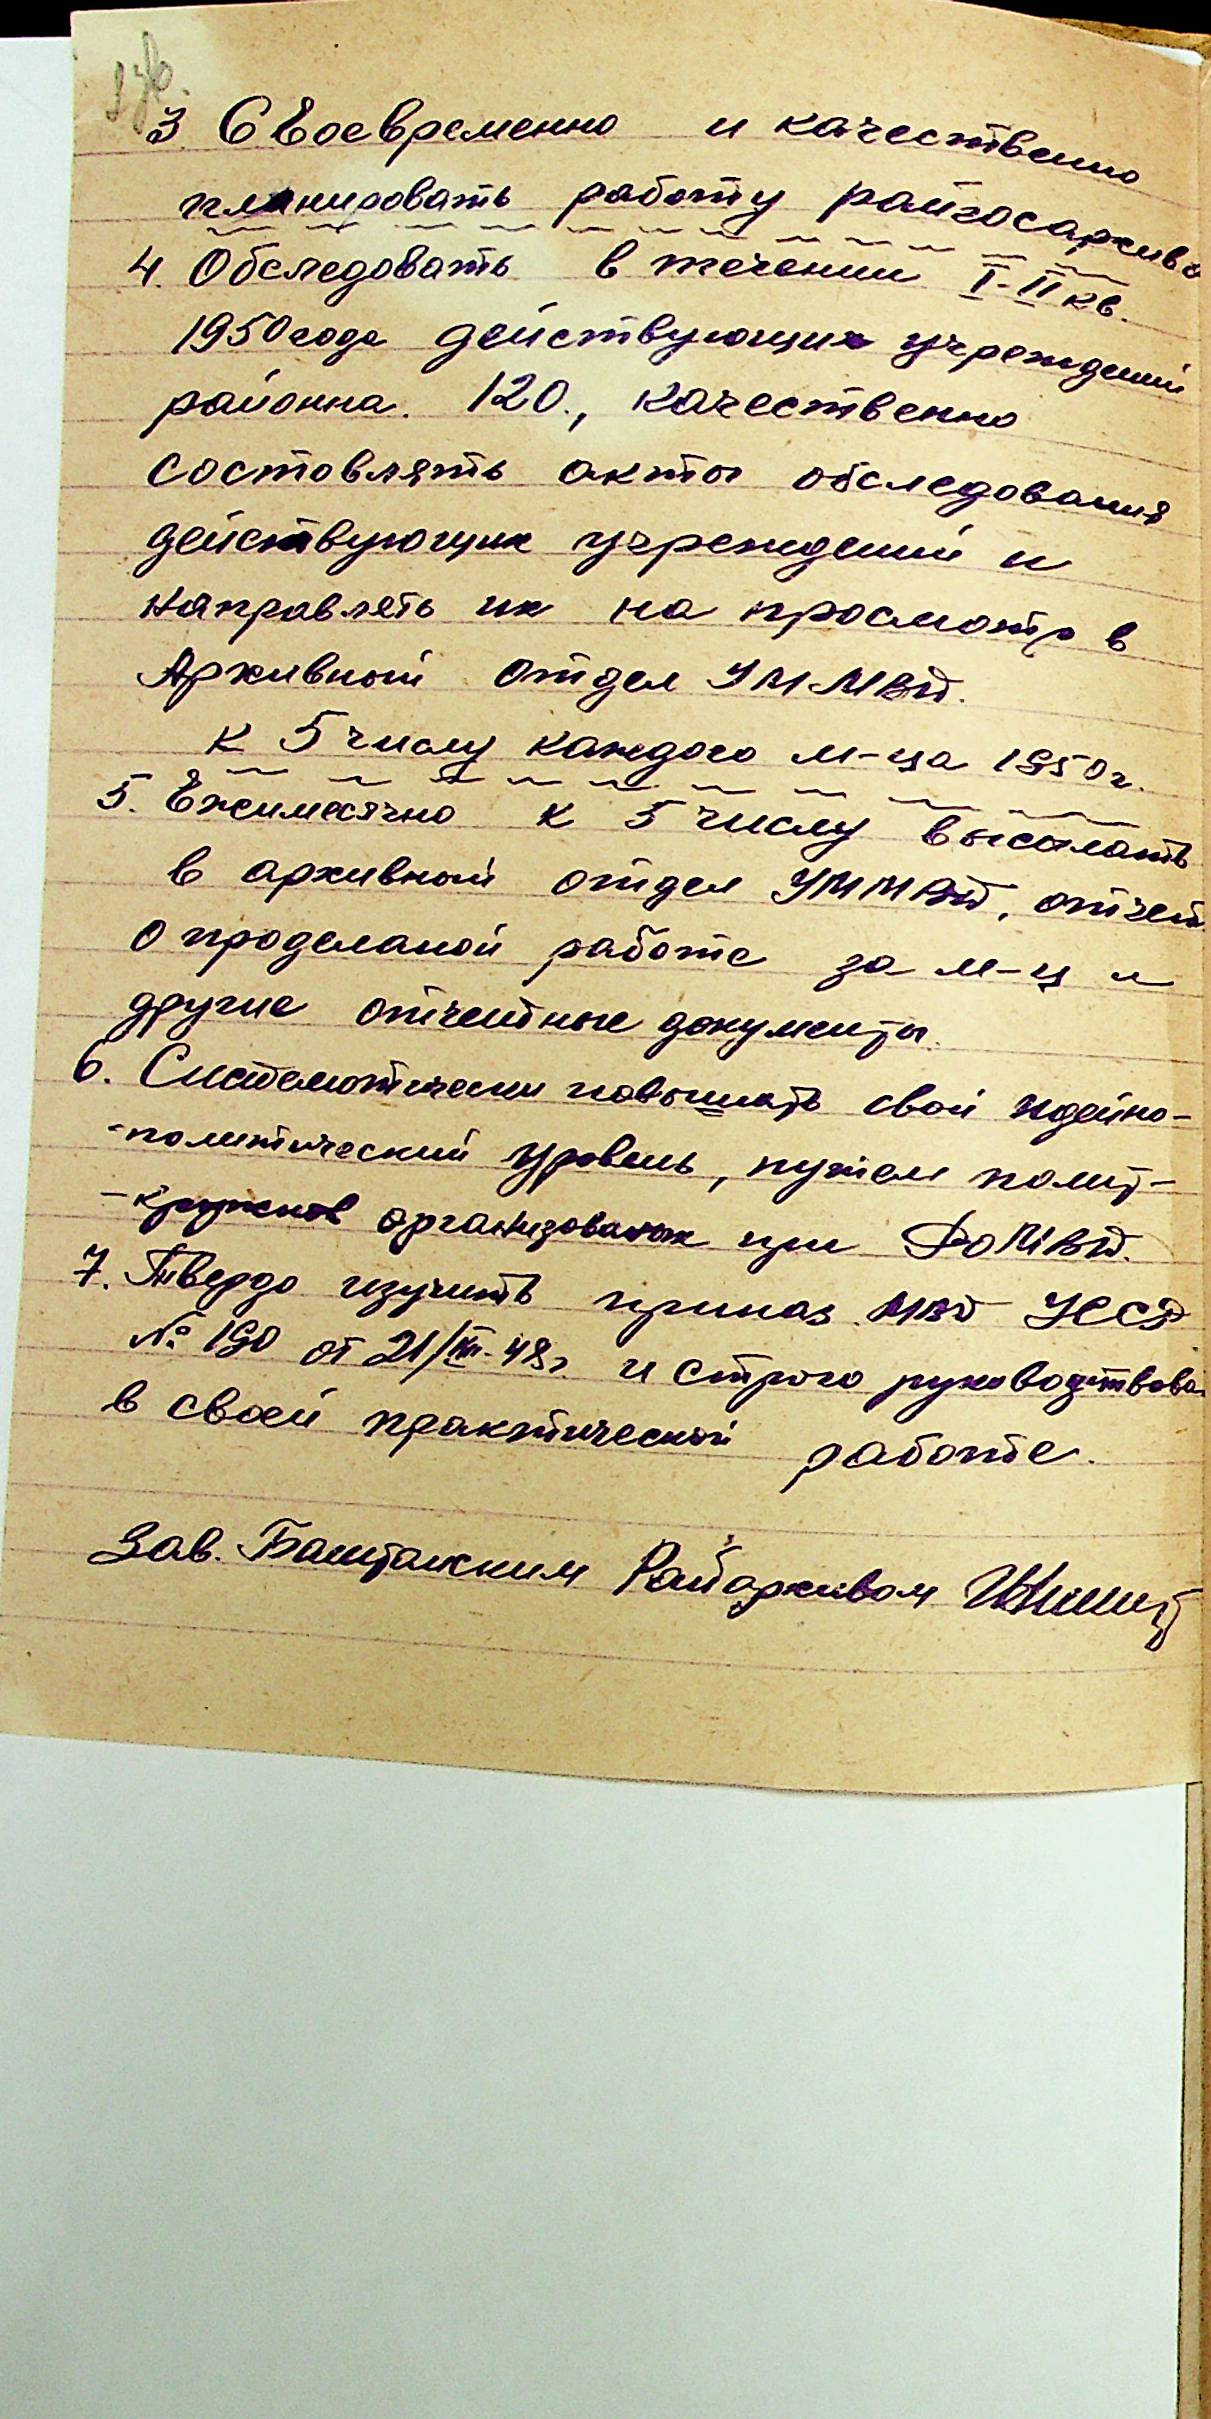 3. Своевременно и качественно
планировать работу райгосархива
4. Обследовать в течении I-II кв.
1950 года действующих учреждений
районна. 120., качественно
состовлять акты обследования
действующих учреждений и
направлять их на просмотр в
Архивный отдел УММВД.
к 5 числу каждого м-ца 1950 г.
5. Ежимесячно к 5 числу высылать
в архивный отдел УММВД, отчет
о проделаной работе за м-ц и
другие отчетные документы.
6. Систематически повышать свой идейно-
-политический уровень, путем полит-
-кружков организованых при РОМВД.
7. Твердо изучить приказ МВД УССР
№ 190 от 21/ -48 г. и строго руководствова
в своей практической работе.
Зав. Баштанским Райархивом